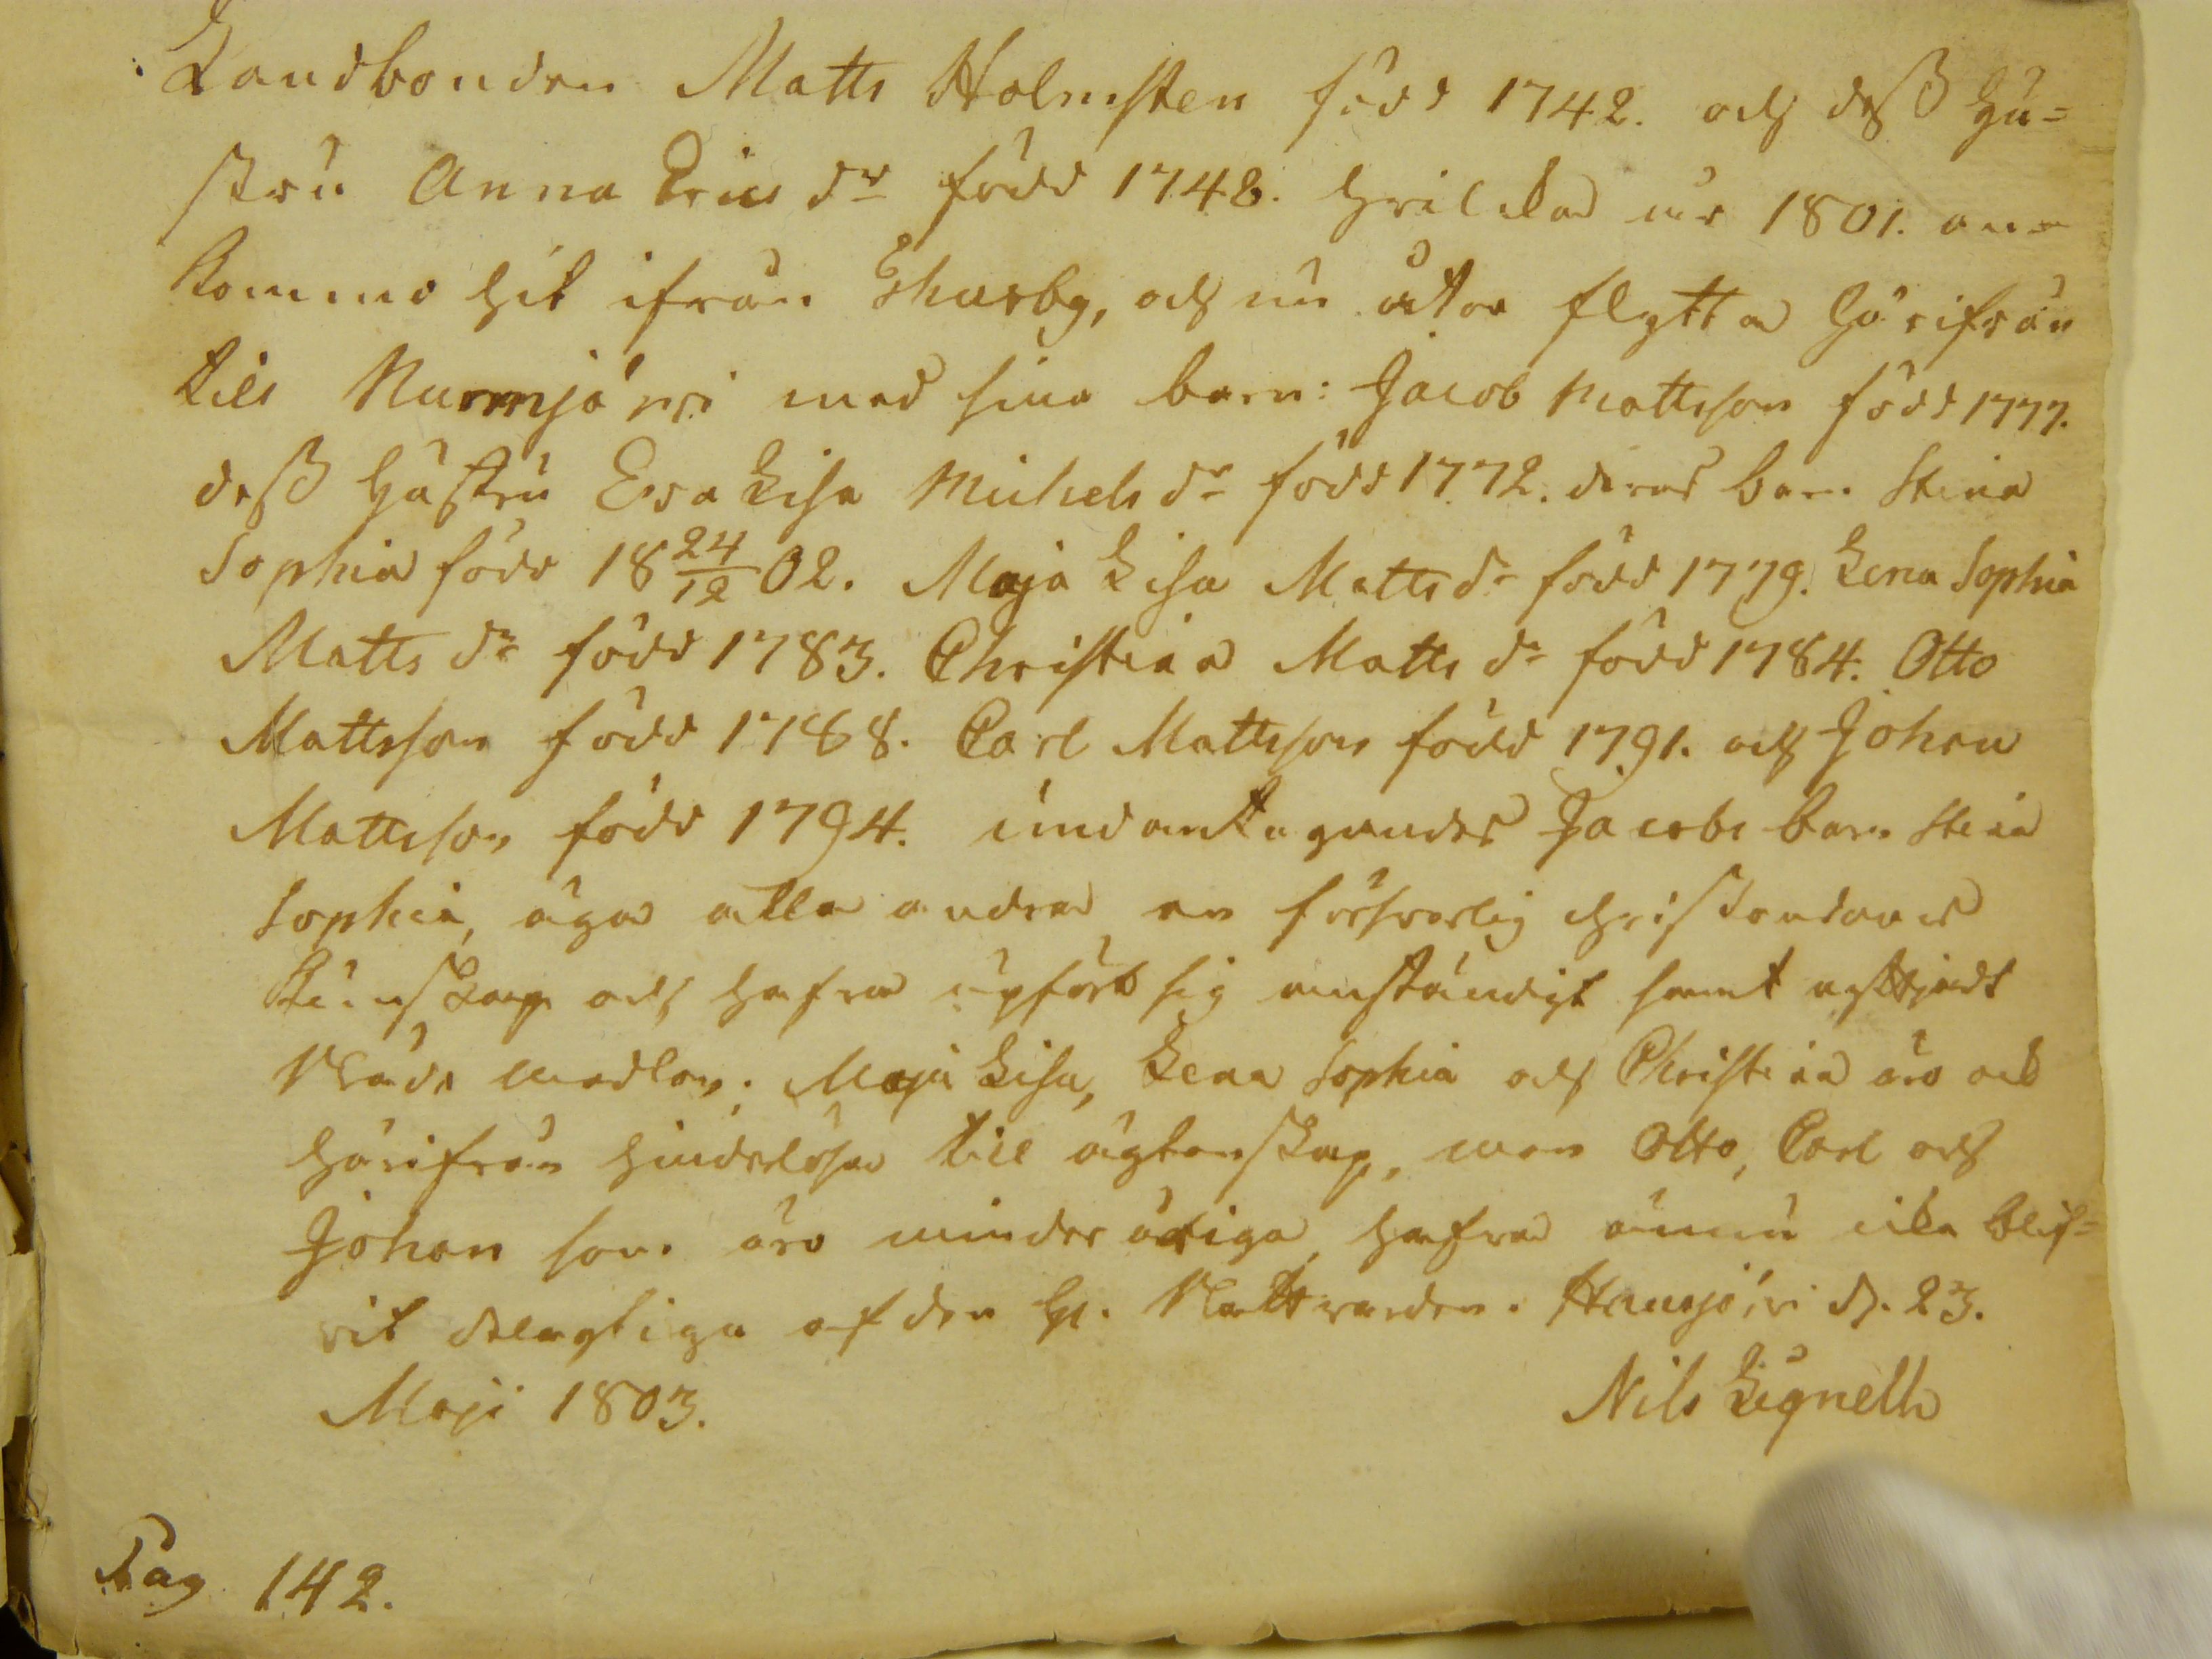 Landbonden Matts Holmsten född 1742. och deß Hu=
stru Anna Erics dr född 1748. hvilka år 1801. an=
kommo hit ifrån Thusby, och nu åter flytta härifrån
till Nurmjärvi med sina barn: Jacob Mattsson född 1777.
deß Hustru Eva Lisa Michels dr född 1772. deras barn Stina
Sophia född 18 24/12 02. Maja Lisa Matts dr född 1779. Lena Sophia
Matts dr född 1783. Christina Matts dr född 1784. Otto
Mattsson född 1788. Carl Mattsson född 1791. och Johan
Mattsson född 1794. undantagandes Jacobs barn Stina
Sophia, äga alla andra en försvarlig christendoms
kunskap och hafva upfört sig anständigt samt nyttjadt
Nåde medlen; Maja Lisa, Lena Sophia och Christina äro ock
härifrån hinderlösa till ägtenskap, men Otto, Carl och
Johan som äro minder åriga, hafva ännu icke blif=
vit delagtiga af den H. Nattvarden. Hausjärvi d. 23.
Maji 1803. Nils Lignell
Pag 142.